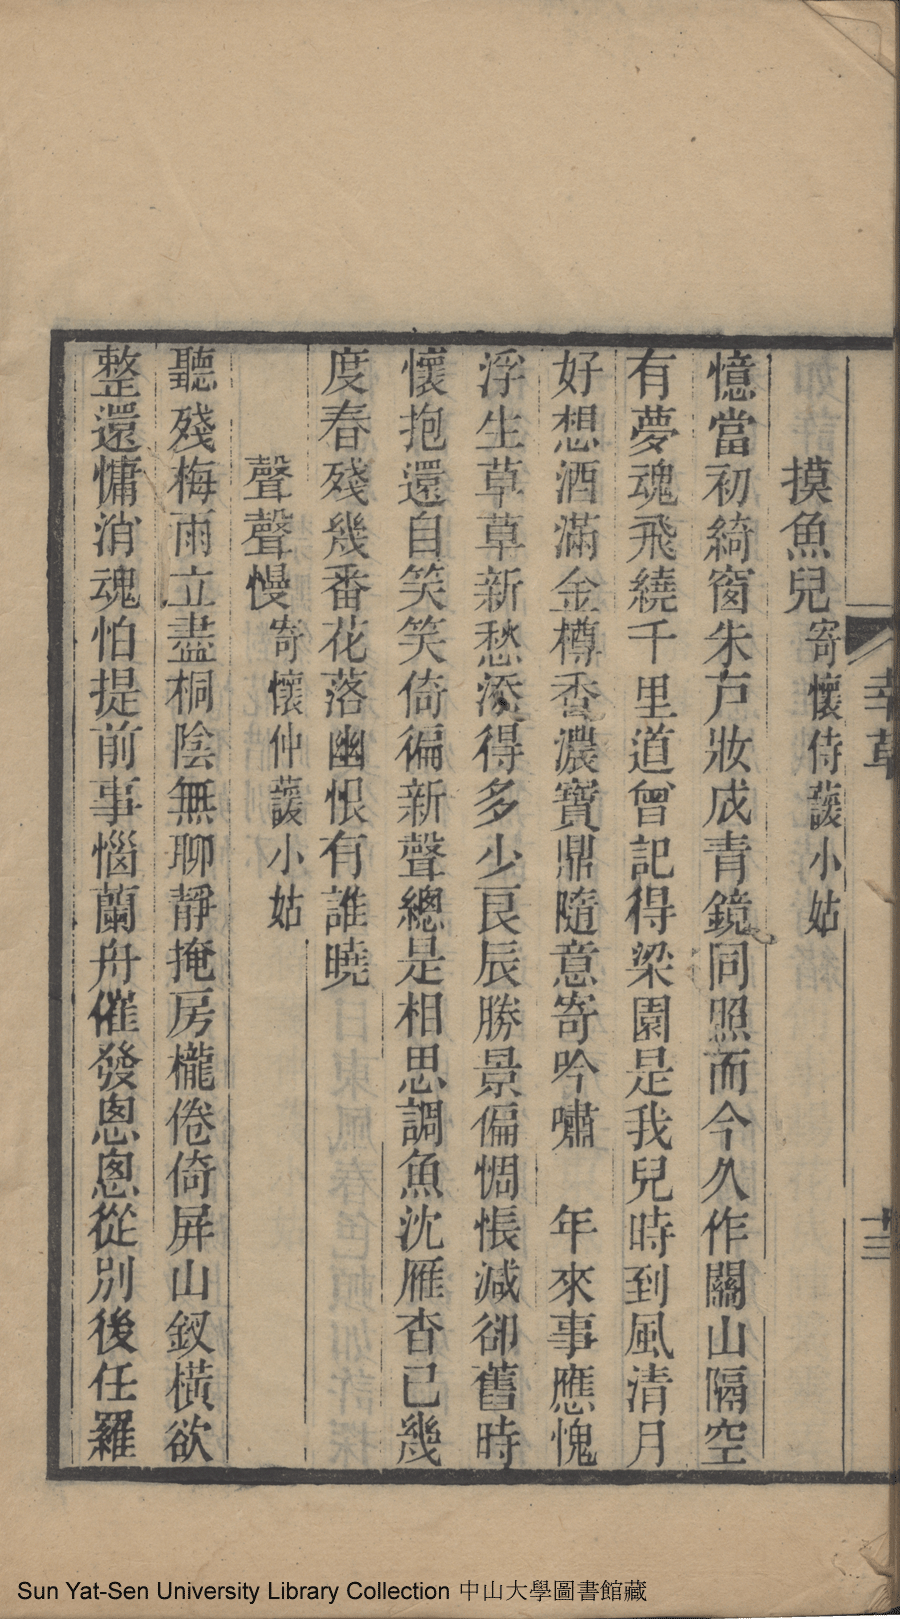 摸魚兒寄懷侍護小姑
憶當初綺窗朱戸妝成青鏡同照而今久作關山隔空
有夢魂飛繞千里道曾記得梁園是我兒時到風清月
好想酒滿金樽香濃寶鼎隨意寄吟嘯　年來事應愧
浮生草草新愁添得多少良辰勝景偏惆悵減卻舊時
懷抱還自笑笑倚徧新聲總是相思調魚沈雁杳已幾
度春殘幾番花落幽恨有誰曉
聲聲慢寄懷仲護小姑
聽殘梅雨立盡桐陰無聊靜掩房櫳倦倚屏山釵橫欲
整還慵消魂怕提前事惱蘭舟催發悤悤從別後任羅
十三
Sun Yat-Sen University Library Collection 中山大學圖書館藏